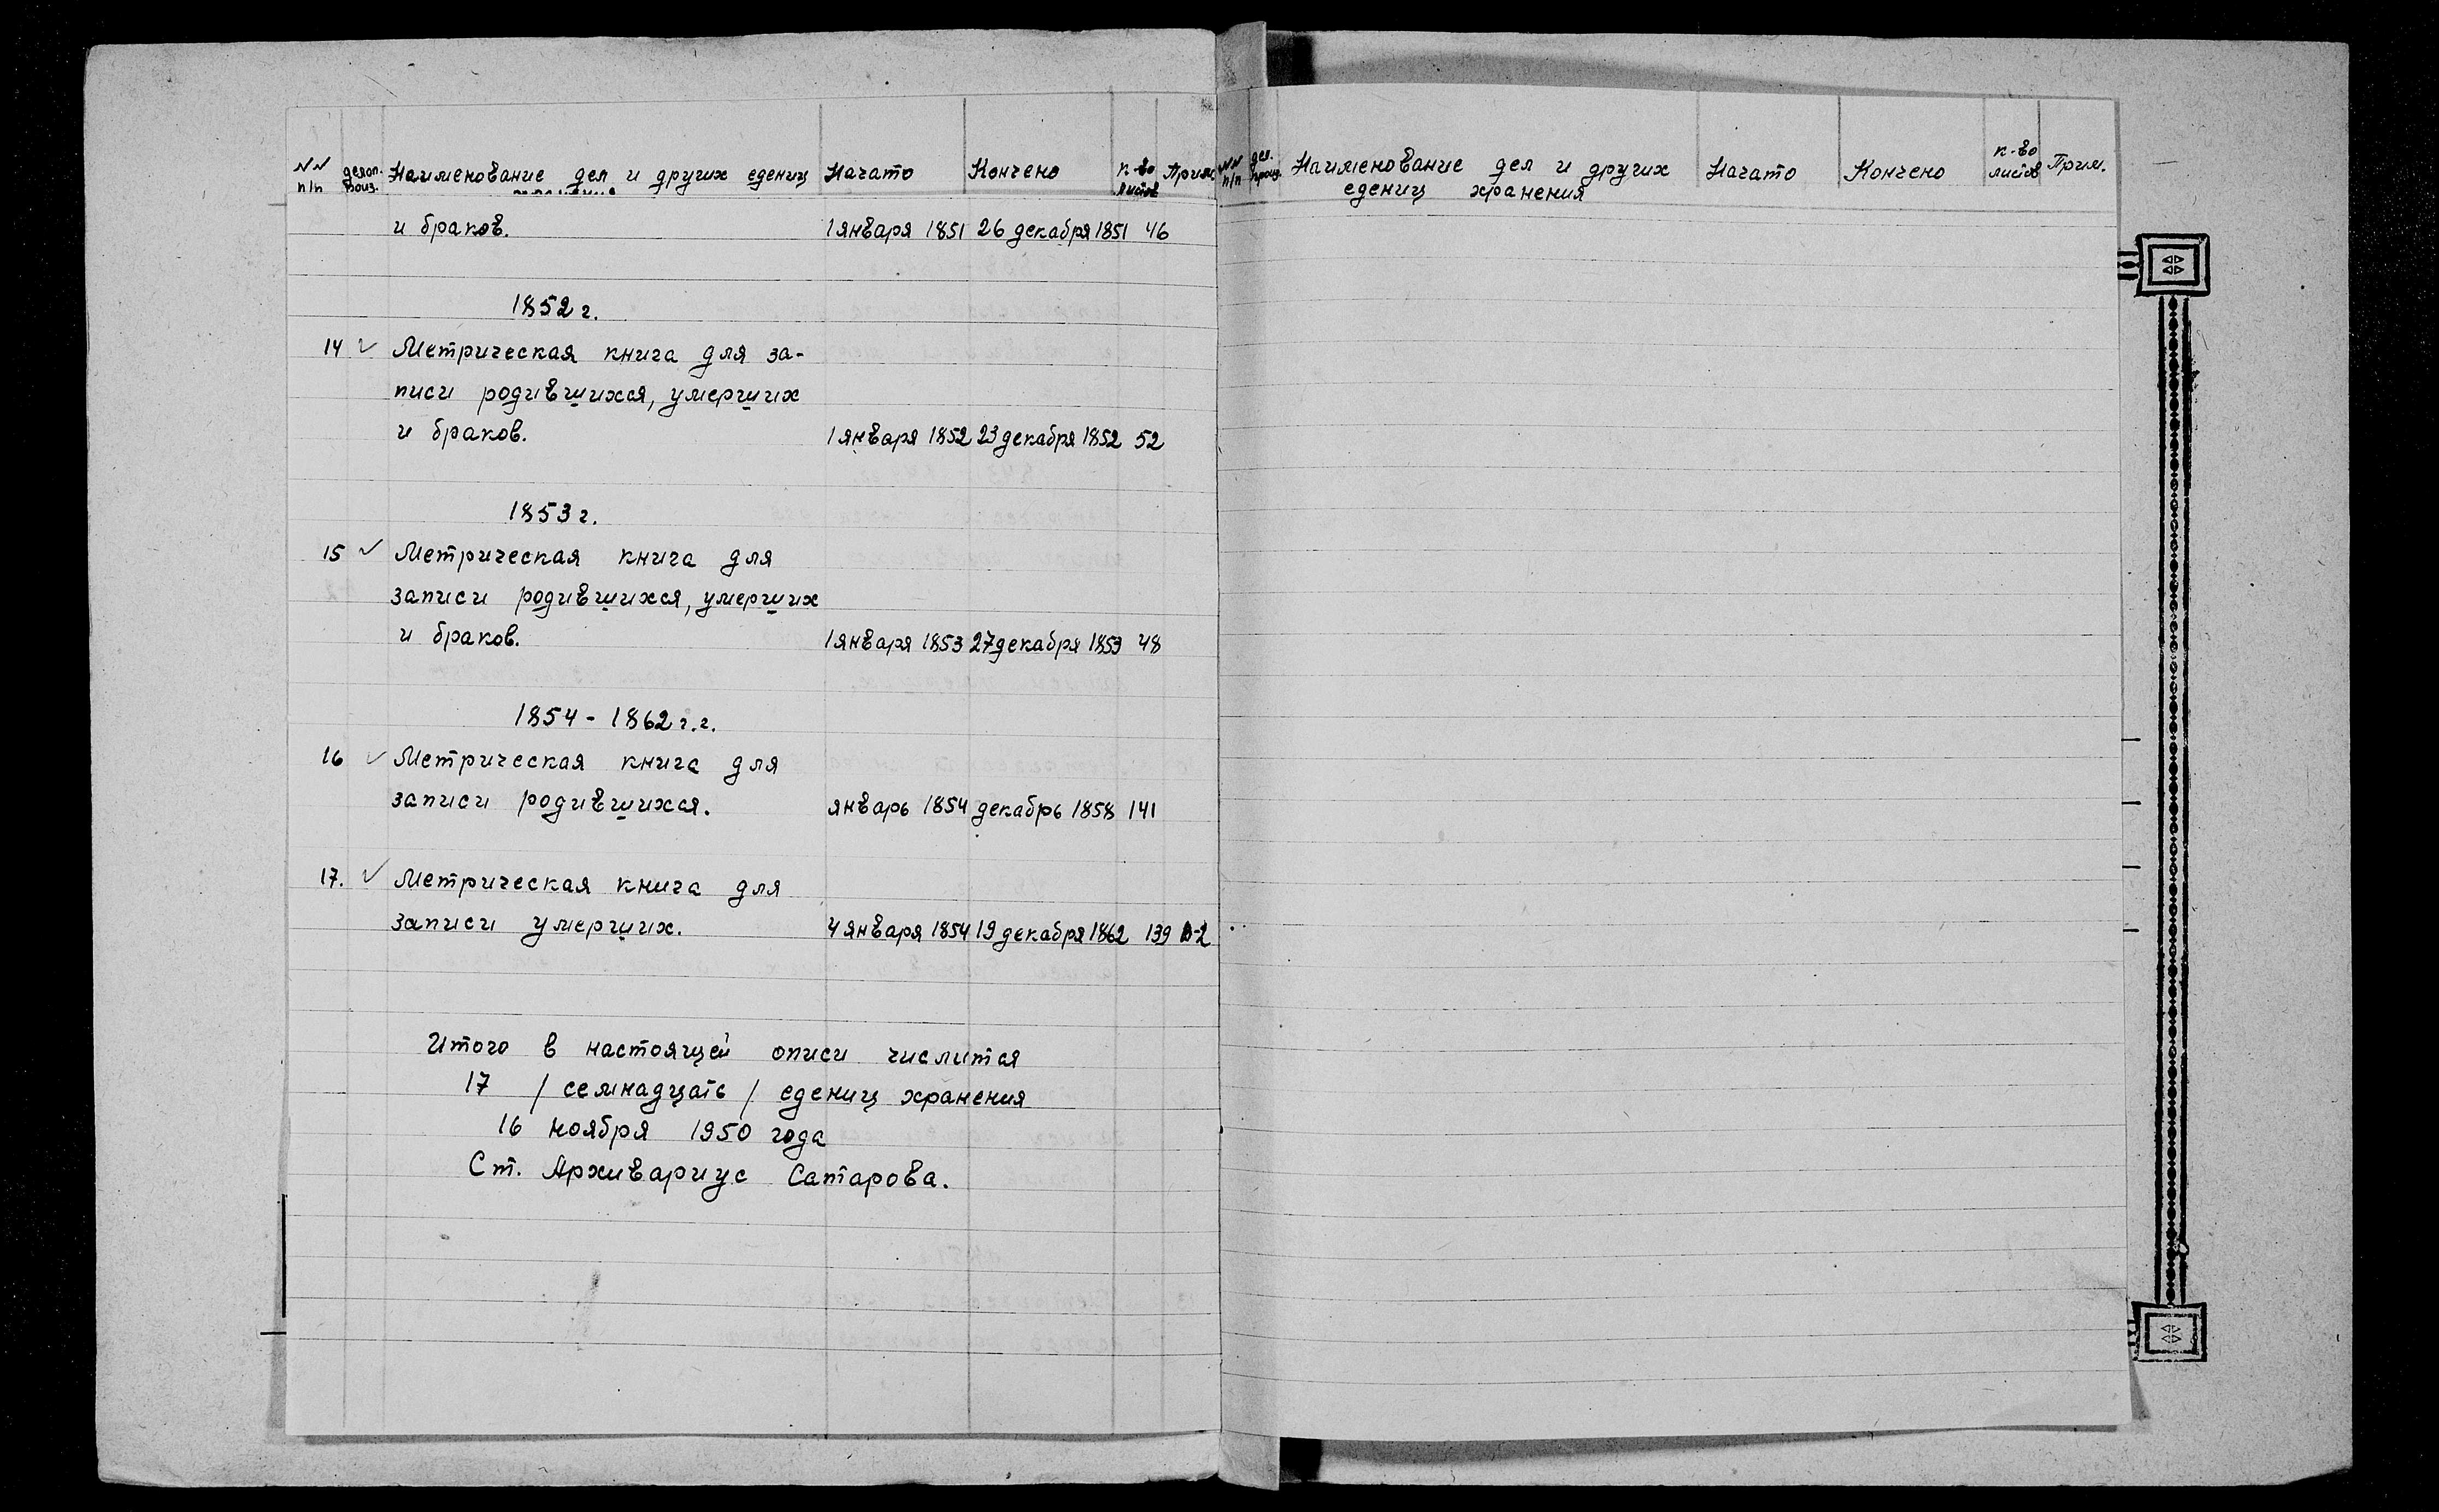 NN делоп. Наименование дел и других едениц Начато Кончено к-во Прим.
п/п роиз. хранения листов
и браков. 1 января 1851 26 декабря 1851 46
1852 г.
14 ✓ Метрическая книга для за-
писи родившихся, умерших
и браков. 1 января 1852 23 декабря 1852 52
1853 г.
15 ✓ Метрическая книга для
записи родившихся, умерших
и браков. 1 января 1853 27 декабря 1853 48
1854 - 1862 г.г.
16 ✓ Метрическая книга для
записи родившихся. январь 1854 декабрь 1858 141
17. ✓ Метрическая книга для
записи умерших. 4 января 1854 19 декабря 1862 139
Итого в настоящей описи числится
17 / семнадцать / едениц хранения
16 ноября 1950 года
Ст. Архивариус Сатарова.
NN дел. Наименование дел и других Начато Кончено к-во Прим.
п/п произ. едениц хранения листов